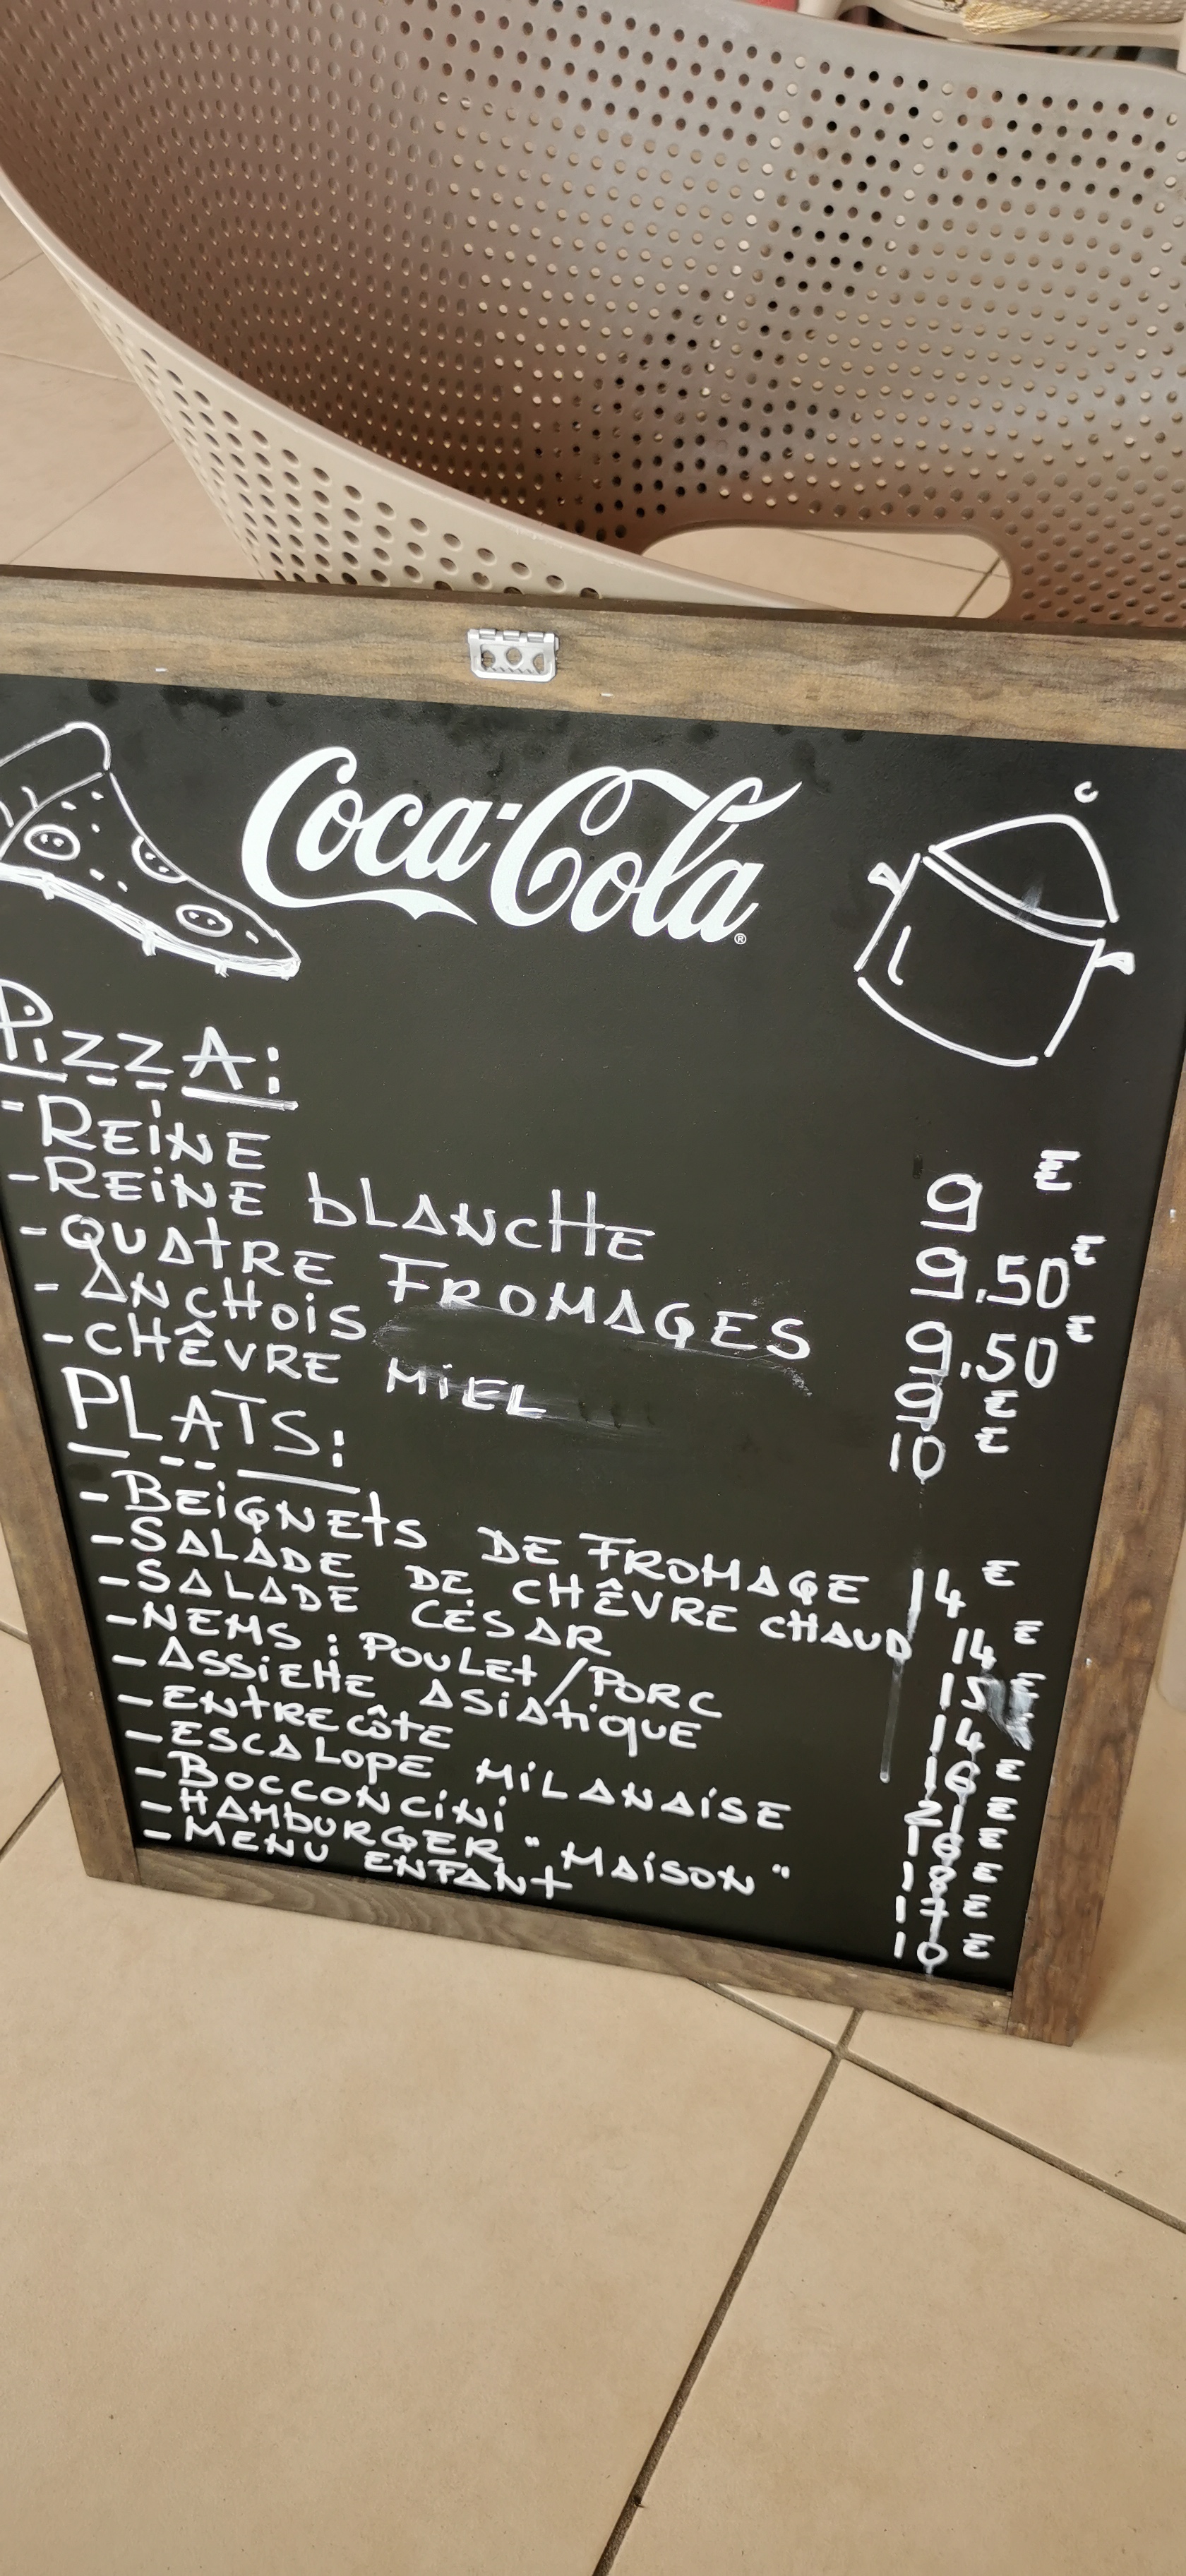 Coca-Cola®
PizzA:
-REiNE 9 €
-REiNE bLANCHE 9.50 €
-QUAtRE FROMAGES 9.50 €
-ANCHOiS 9 €
-CHÊVRE MiEL 10 €
PLATS:
-BEiGNEtS DE FROMAGE 14 €
-SALADE DE CHÊVRE CHAUD 14 €
-SALADE CÉSAR 15 €
-NEMS : POULEt/PORC 14
-ASSiEttE ASiAtiqUE 16 €
-ENtRECôtE 21 €
-ESCALOPE MiLANAiSE 16 €
-BOCCONCiNi 18 €
-HAMbURGER "MAiSON" 17 €
-MENU ENFANt 10 €